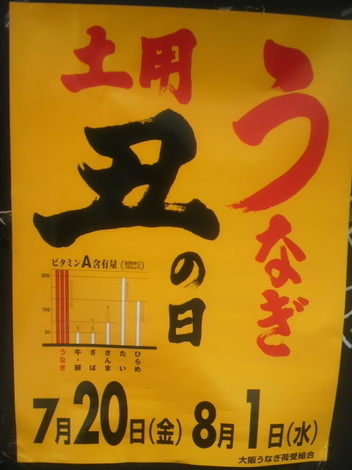 うなぎ
土用
丑の日
ビタミンA含有量
200
150
100
50
うなぎ
牛・豚
さば
さんま
たい
ひらめ
7月20日(金) 8月1日(水)
大阪うなぎ荷受組合